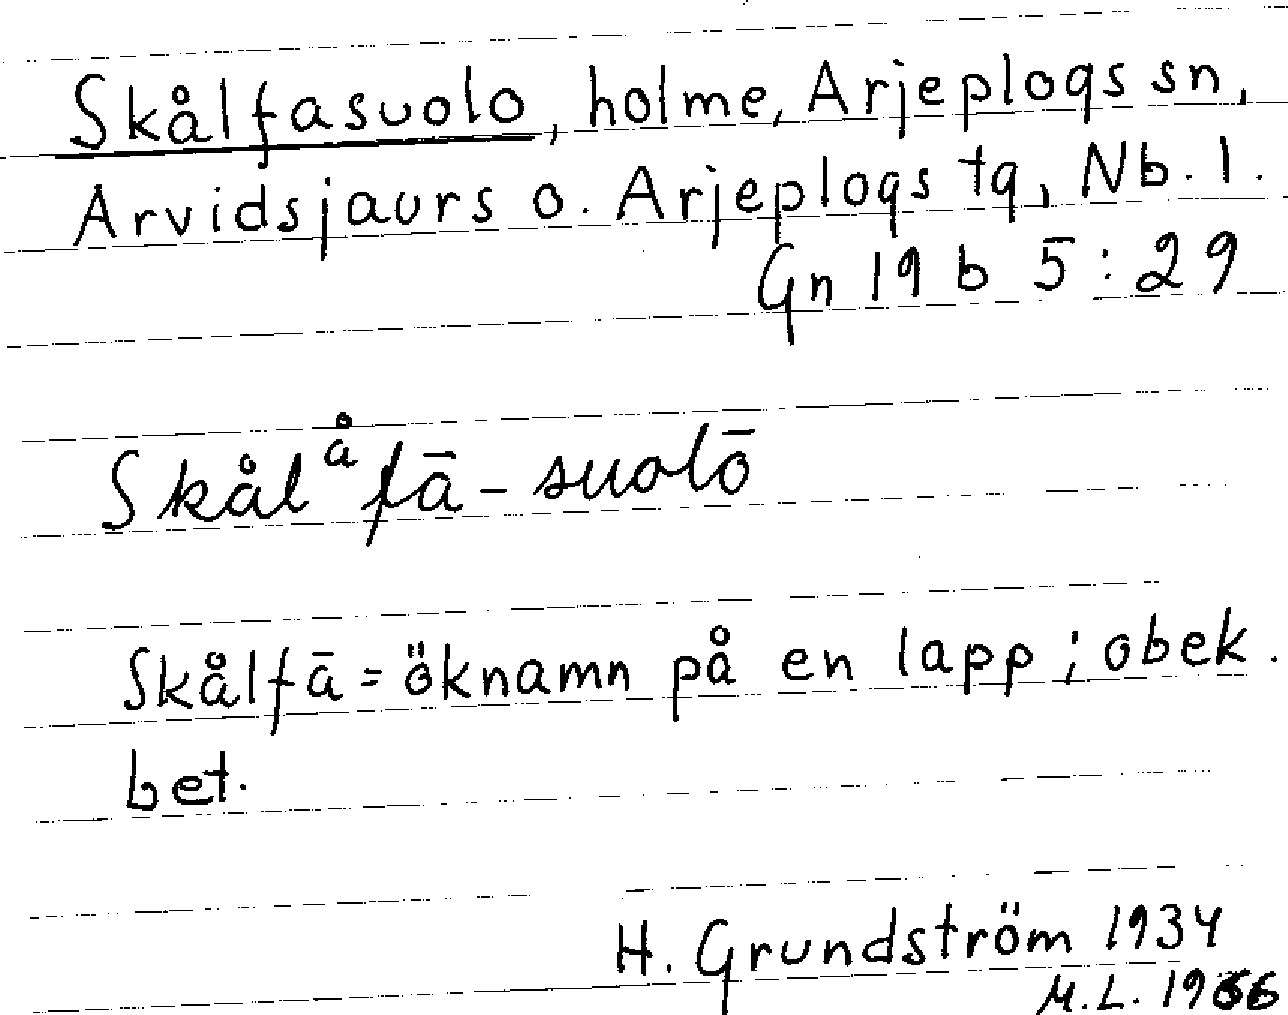 Skålfasuolo, holme, Arjeplogs sn,
Arvidsjaurs o. Arjeplogs tg, Nb. l.
Gn 19 b 5:29
Skålᵃ̊fā-suolō
Skålfā = öknamn på en lapp; obek.
bet.
H. Grundström 1934
M.L. 1966